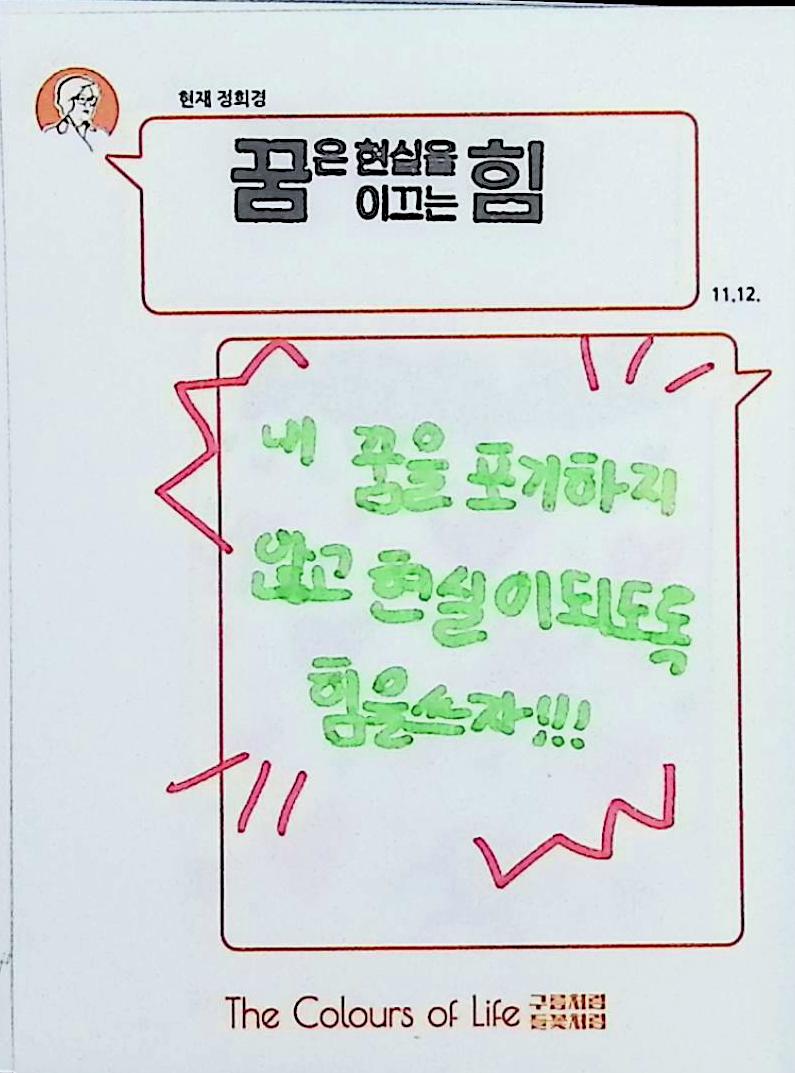 현재 정희경
꿈은 현실을
이끄는 힘
11.12.
내 꿈을 포기하지
않고 현실이되도록
힘을쓰자!!!
The Colours of Life 구름처럼
들꽃처럼